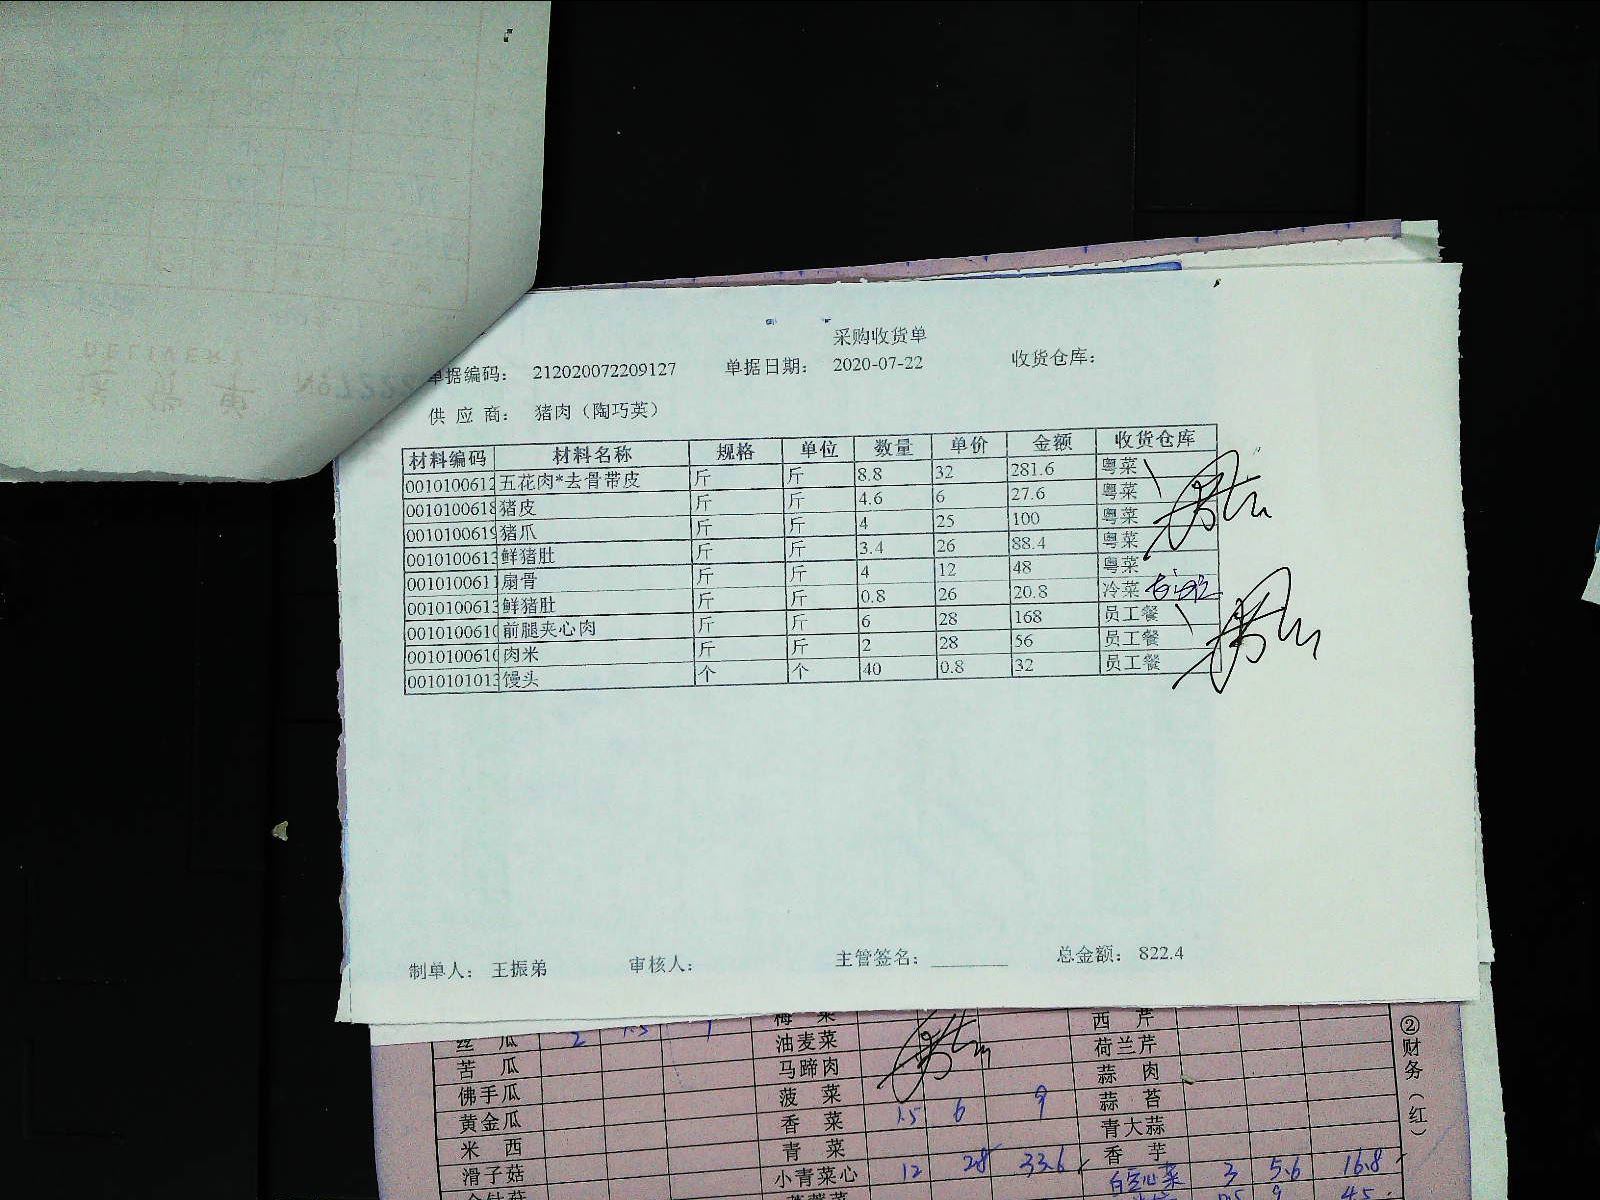 采购收货单
单据编码： 212020072209127 单据日期： 2020-07-22 收货仓库：
供 应 商： 猪肉（陶巧英）
材料编码 材料名称 规格 单位 数量 单价 金额 收货仓库
0010100612 五花肉*去骨带皮 斤 斤 8.8 32 281.6 粤菜
0010100618 猪皮 斤 斤 4.6 6 27.6 粤菜
0010100619 猪爪 斤 斤 4 25 100 粤菜
0010100613 鲜猪肚 斤 斤 3.4 26 88.4 粤菜
0010100611 扇骨 斤 斤 4 12 48 粤菜
0010100613 鲜猪肚 斤 斤 0.8 26 20.8 冷菜
0010100610 前腿夹心肉 斤 斤 6 28 168 员工餐
0010100610 肉米 斤 斤 2 28 56 员工餐
0010101013 馒头 个 个 40 0.8 32 员工餐
制单人： 王振弟 审核人： 主管签名： 总金额： 822.4
丝 瓜 2 1.5 西 芹
苦 瓜 油麦菜 荷兰芹
佛手瓜 马蹄肉 蒜 肉
黄金瓜 菠 菜 蒜 苔
米 西 香 菜 1.5 6 9 青大蒜
滑子菇 青 菜 香 芋
小青菜心 12 2.8 33.6 3 5.6 16.8
②财务（红）